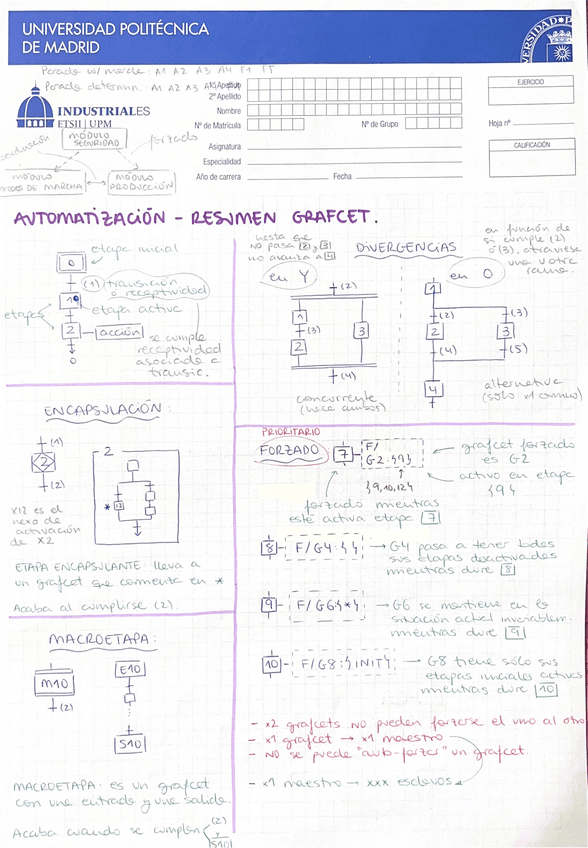 UNIVERSIDAD POLITÉCNICA
DE MADRID
Parada determin. A1 A2 A3
INDUSTRIALES
ETSII | UPM
1º Apellido
2º Apellido
Nombre
Nº de Matrícula
Nº de Grupo
Asignatura
Especialidad
Año de carrera
Fecha
EJERCICIO
Hoja nº
CALIFICACIÓN
MÓDULO
SEGURIDAD
forzado
MÓDULO
MODOS DE MARCHA
MÓDULO
PRODUCCIÓN
AUTOMATIZACIÓN - RESUMEN GRAFCET.
0
etapa inicial
(1) transición
o receptividad
1
etapa activa
etapas
2
acción
se cumple
receptividad
asociada a
transic.
hasta que
no pasa 2 y 3
no avanza a 4
DIVERGENCIAS
en función de
si cumple (2)
o (3), atraviesa
una u otra
rama.
en Y
(2)
1
(3)
2
3
(4)
concurrente
(hace ambos)
en O
1
(2)
(3)
2
3
(4)
(5)
4
alternativa
(sólo x1 camino)
ENCAPSULACIÓN:
(1)
2
(2)
2
*
12
X12 es el
nexo de
activación
de X2
ETAPA ENCAPSULANTE: lleva a
un grafcet que comienta en *
Acaba al cumplirse (2).
MACROETAPA:
M10
(2)
E10
S10
MACROETAPA: es un grafcet
con una entrada y una salida.
Acaba cuando se cumplen
(2)
y
S10
PRIORITARIO
FORZADO
7
F/
G2:{9}
{9,10,12}
grafcet forzado
es G2
activo en etapa
{9}
forzado mientras
esté activa etapa 7
8
F/G4:{ }
G4 pasa a tener todas
sus etapas desactivadas
mientras dure 8
9
F/G6:{*}
G6 se mantiene en la
situación actual invariablem.
mientras dure 9
10
F/G8:{INIT}
G8 tiene sólo sus
etapas iniciales activas
mientras dure 10
- x2 grafcets NO pueden forzarse el uno al otro
- x1 grafcet → x1 maestro
- NO se puede "auto-forzar" un grafcet.
- x1 maestro → xxx esclavos